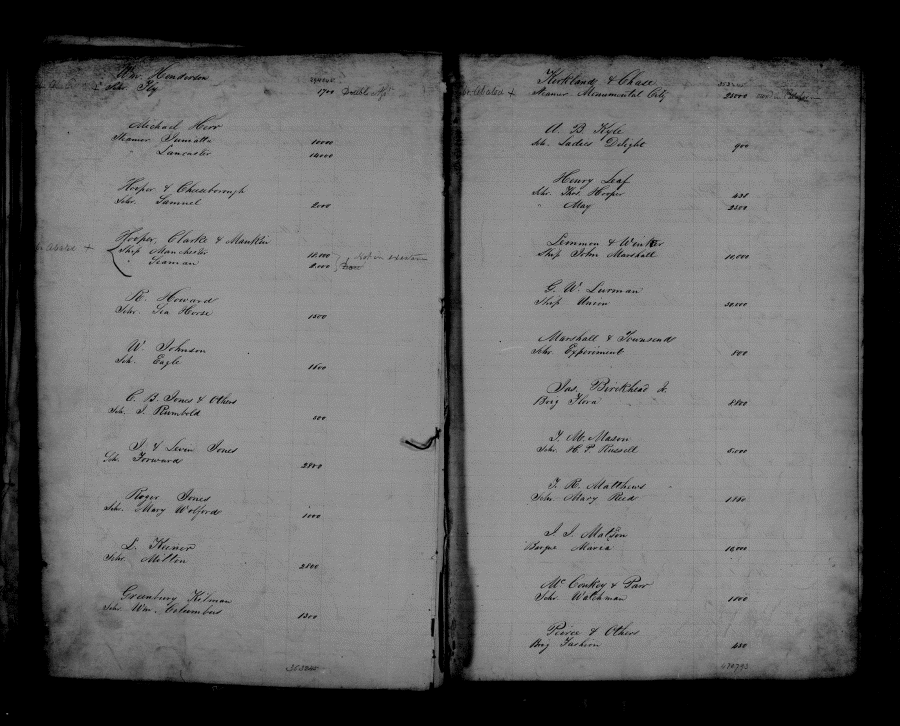 Wm. Henderson
Schr. Fly 1700 Double Apt
Michael Herr
Steamer Jumatta 10000
" Lancaster 14000
Hooper & Cheesborough
Schr. Samuel 200
Hooper, Clarke & Manklin
Ship Manchester 18.000
" Seaman 8.000
R. Howard
Schr. Sea Horse 1500
W Johnson
Sch. Eagle 1600
C. B. Jones & Others
Sch. J. Rumbold 500
J. & Levin Jones
Sch. Forward 2800
Roger Jones
Schr. Mary Wolford 1000
L. Keener
Schr. Milton 2500
Greenbury Kilman
Schr Wm. Columbus 1300
353345
Kirkland & Chase
Steamer Monumental City 25000
A. B. Kyle
Sch. Ladies Delight 900
Henry Leaf
Schr. Thos. Hooper 450
" May 2500
Lemmon & Winkler
Ship John Marshall 10,000
G. W. Lurman
Ship Union 30.000
Marshall & Townsend
Schr Experiment 800
Jas. Birckhead Jr.
Brig Flora 8800
T. M. Mason
Schr. H. P. Russell 5.000
T. R. Matthews
Schr Mary Reed
J. J. Matson
Barque Maria 10,000
McConkey & Parr
Schr Watchman 1800
Peirce & Others
Brig Fashion 450
470793